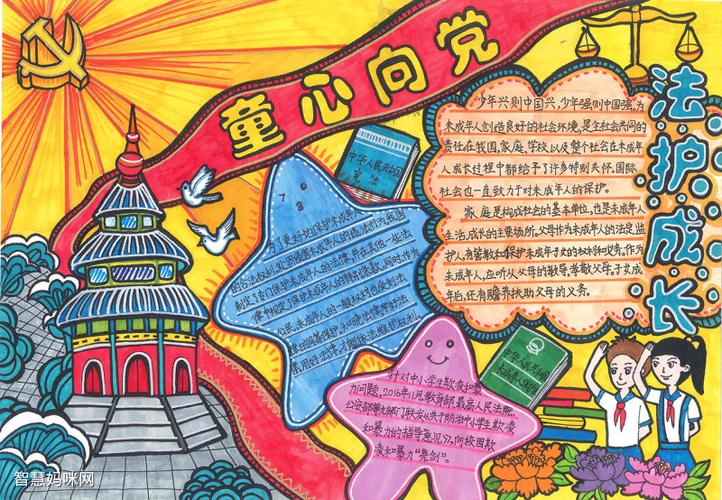 童心向党
法护成长
少年兴则中国兴，少年强则中国强。为
未成年人创造良好的社会环境，是全社会共同的
责任，在我国，家庭、学校以及整个社会在未成年
人成长过程中都给予了许多特别关怀。国际
社会也一直致力于对未成年人的保护。
家庭是构成社会的基本单位，也是未成年人
生活、成长的主要场所，父母作为未成年人的法定监
护人，有管教和保护未成年子女的权利和义务，作为
未成年人，应听从父母的教导，孝敬父母，子女成
年后，还有赡养扶助父母的义务。
中华人民共和国
宪法
为了更好地保护未成年
的合法权利，
制定了专门保护未成年人的法律，并在其他一些法
律中规定了保护未成年人的特别条款，同时，作为
公民，未成年人的一般权利也受到法
中华人民共和国
未成年人保护法
针对中小学生欺凌和暴
力问题，2016年11月，教育部、最高人民法院、
公安部等九部门联合发
和暴力的指导意见》，向校园欺
凌和暴力“亮剑”。
智慧妈咪网